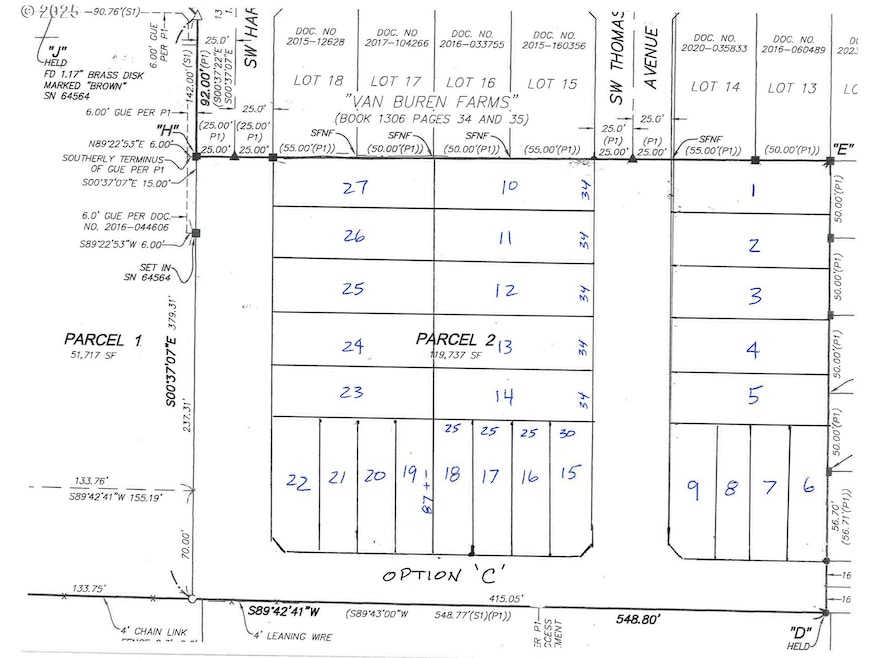 © 2025
90.76'(S1)
"J"
HELD
FD 1.17" BRASS DISK
MARKED "BROWN"
SN 64564
6.00' GUE
PER P1
142.00'(S1)
92.00'(P1)
(S00°37'22"E P1)
S00°37'07"E
13
25.0'
SW HAR
25.0'
DOC. NO
2015-12628
DOC. NO.
2017-104266
DOC. NO.
2016-033755
DOC. NO.
2015-160356
LOT 18
LOT 17
LOT 16
LOT 15
"VAN BUREN FARMS"
(BOOK 1306 PAGES 34 AND 35)
SW THOMAS
AVENUE
DOC. NO.
2020-035833
DOC. NO.
2016-060489
202
LOT 14
LOT 13
LC
6.00' GUE PER P1
"H"
N89°22'53"E 6.00'
SOUTHERLY TERMINUS
OF GUE PER P1
S00°37'07"E 15.00'
6.0' GUE PER DOC.
NO. 2016-044606
S89°22'53"W 6.00'
SET IN
SN 64564
(25.00' P1)
25.00'
(25.00' P1)
25.00'
(55.00'(P1))
SFNF
(50.00'(P1))
SFNF
(50.00'(P1))
SFNF
(55.00'(P1))
25.0'
(25.00' P1)
25.00'
25.0'
(25.00' P1)
25.00'
SFNF
(55.00'(P1))
(50.00'(P1))
"E"
27
10
34
1
50.00'(P1)
26
11
34
2
50.00'(P1)
25
12
34
3
PARCEL 1
51,717 SF
S00°37'07"E 379.31'
237.31'
PARCEL 2
119,737 SF
24
13
34
4
50.00'(P1)
23
14
34
5
50.00'(P1)
25
25
25
30
22
21
20
19
87 +-
18
17
16
15
9
8
7
6
56.70'
(56.71'(P1))
133.76'
S89°42'41"W 155.19'
70.00'
OPTION 'C'
16
16
133.75'
415.05'
S89°42'41"W
(S89°43'00"W 548.77'(S1)(P1))
548.80'
4' CHAIN LINK
4' LEANING WIRE
"D"
HELD